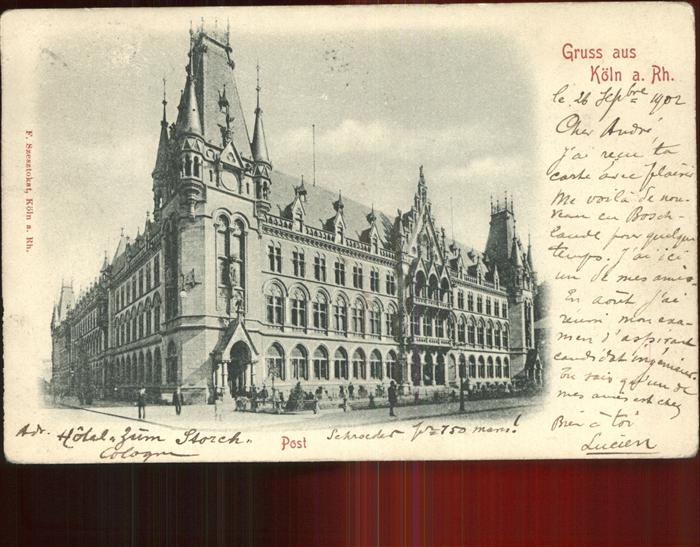 Gruss aus
Köln a. Rh.
le 26 Sepbre 1902
Cher André,
J'ai reçu ta
carte avec plaisir
Me voilà de nou-
veau en Bosch-
lande pour quelque
temps. J'ai ici
un de mes amis.
En août j'ai
réuni mon exa-
men d'aspirant
candidat ingénieur.
Tu sais qu'un de
mes amis est chez
Bien à toi
Lucien
F. Szesztokat, Köln a. Rh.
Adr. Hôtel "Zum Storch"
Cologne
Post
Schroeder 750 mars!